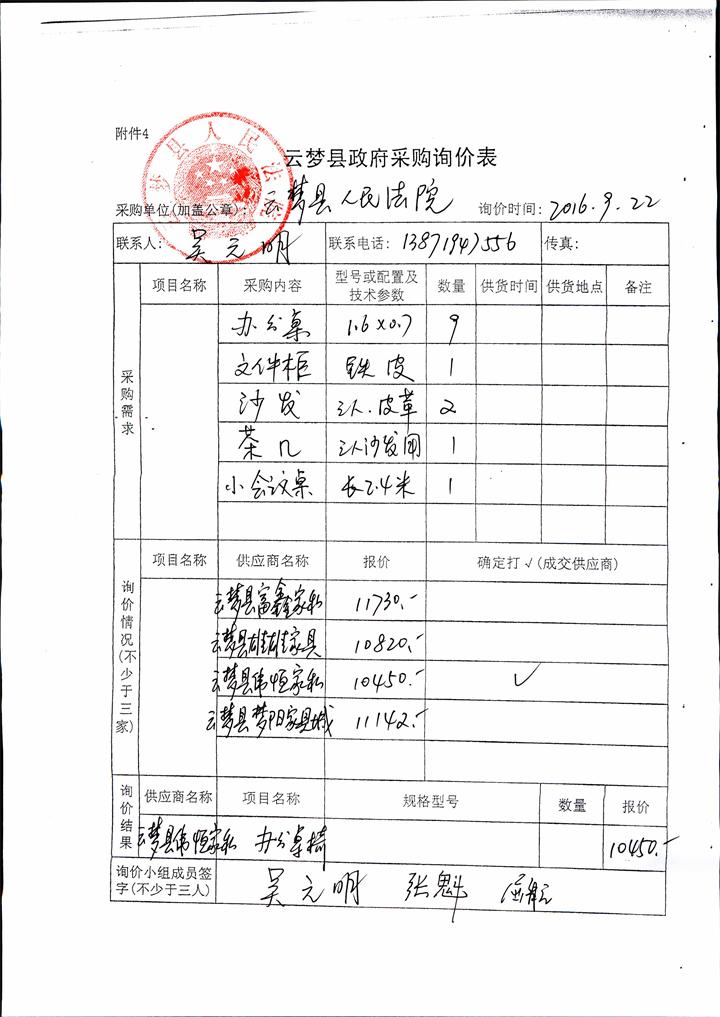 附件4
云梦县人民法院
云梦县政府采购询价表
采购单位(加盖公章): 云梦县人民法院 询价时间: 2016.9.22
联系人: 吴元明 联系电话: 13871947556 传真:
采购需求
项目名称 采购内容 型号或配置及技术参数 数量 供货时间 供货地点 备注
办公桌 1.6×0.7 9
文件柜 铁皮 1
沙发 三人.皮革 2
茶几 三人沙发用 1
小会议桌 长2.4米 1
询价情况(不少于三家)
项目名称 供应商名称 报价 确定打√(成交供应商)
云梦县富鑫家私 11730.-
云梦县雄雄家具 10820.-
云梦县伟恒家私 10450.- √
云梦县梦阳家具城 11142.-
询价结果
供应商名称 项目名称 规格型号 数量 报价
云梦县伟恒家私 办公桌椅 10450.-
询价小组成员签字(不少于三人) 吴元明 张魁